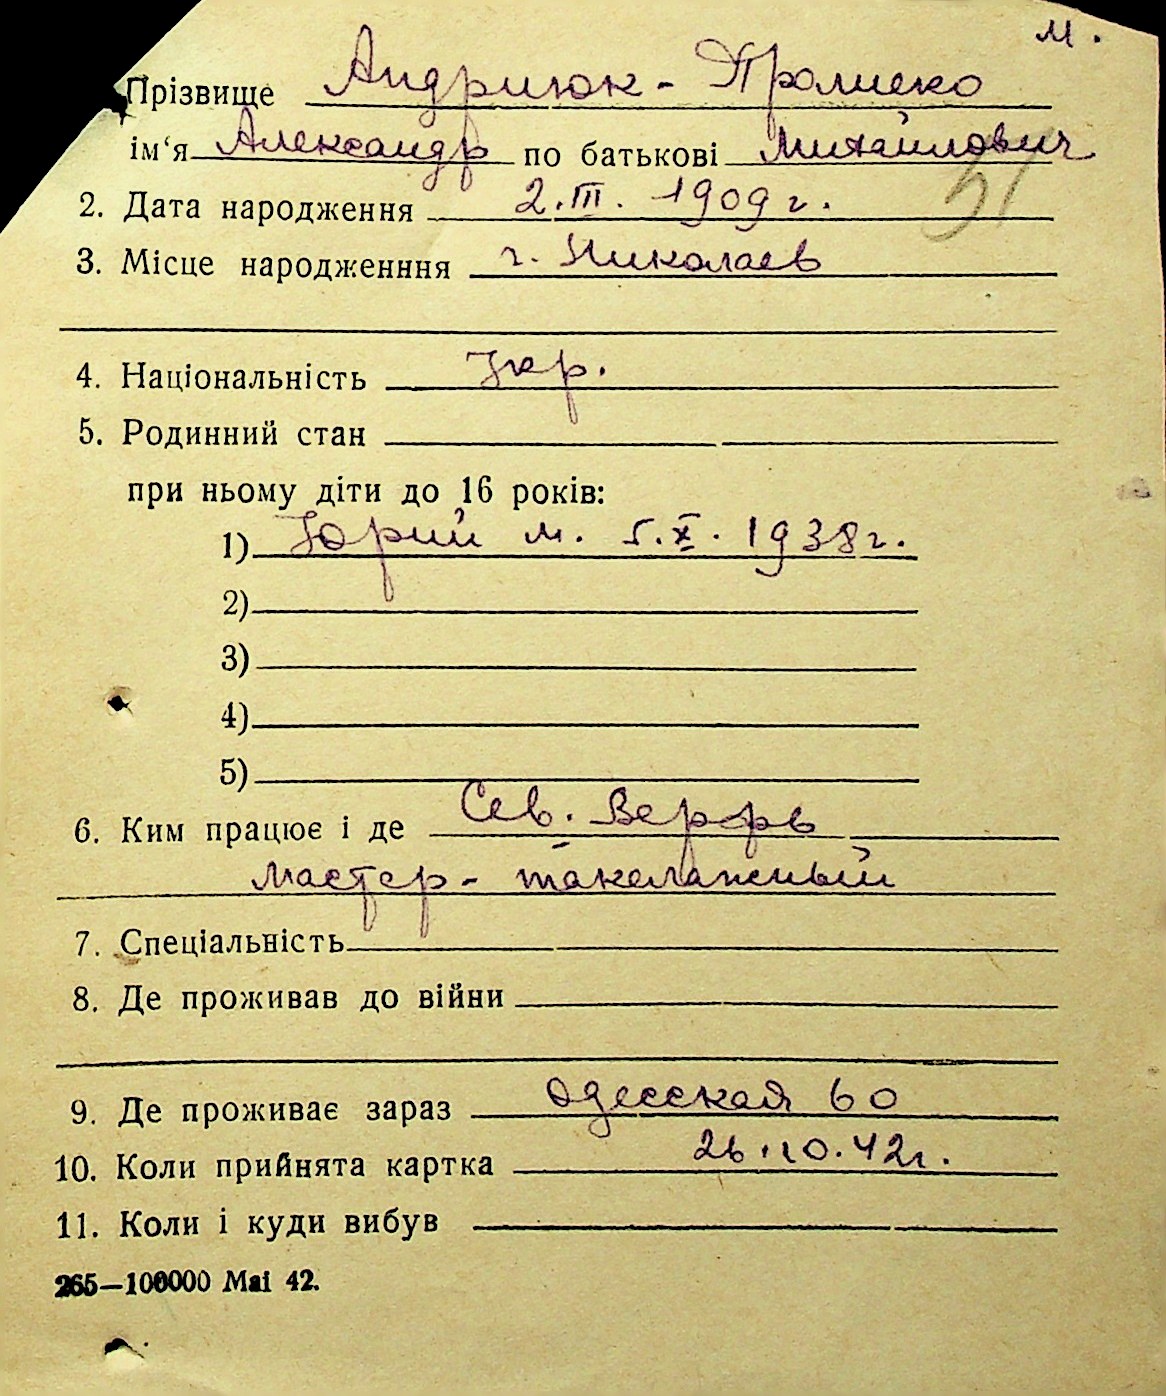 м.
Прізвище Андриюк-
ім‘я Александр по батькові Михайлович
51
2. Дата народження 2.III. 1909 г.
3. Місце народженння г. Николаев
4. Національність Укр.
5. Родинний стан
при ньому діти до 16 років:
1) Юрий м. 5.X. 1938 г.
2)
3)
4)
5)
6. Ким працює і де Сев. Верфь
мастер - такелажный
7. Спеціальність
8. Де проживав до війни
9. Де проживає зараз Одесская 60
10. Коли прийнята картка 26.10.42 г.
11. Коли і куди вибув
265—100000 Mai 42.